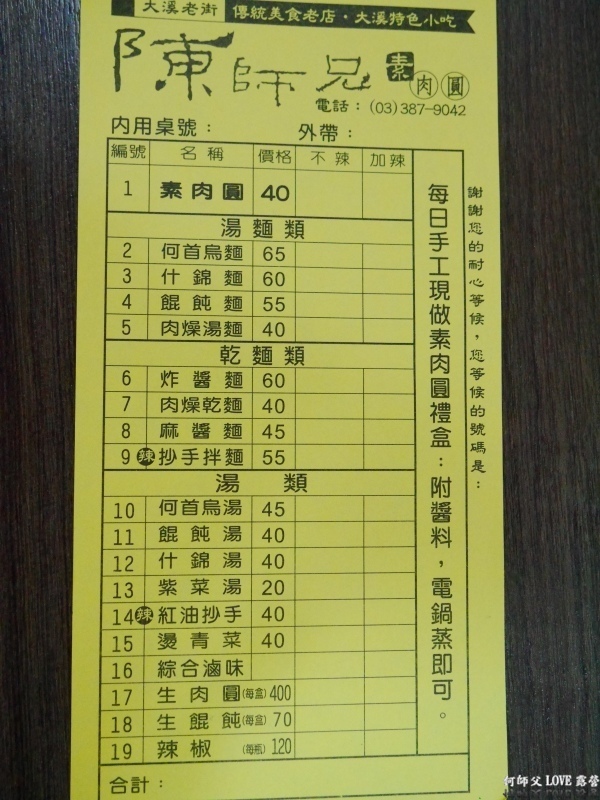 大溪老街 傳統美食老店・大溪特色小吃
陳師兄 素肉圓
電話：(03)387-9042
內用桌號： 外帶：
編號 名稱 價格 不辣 加辣
1 素肉圓 40
湯麵類
2 何首烏麵 65
3 什錦麵 60
4 餛飩麵 55
5 肉燥湯麵 40
乾麵類
6 炸醬麵 60
7 肉燥乾麵 40
8 麻醬麵 45
9 辣 抄手拌麵 55
湯類
10 何首烏湯 45
11 餛飩湯 40
12 什錦湯 40
13 紫菜湯 20
14 辣 紅油抄手 40
15 燙青菜 40
16 綜合滷味
17 生肉圓(每盒) 400
18 生餛飩(每盒) 70
19 辣椒 (每瓶) 120
合計：
每日手工現做素肉圓禮盒：附醬料，電鍋蒸即可。
謝謝您的耐心等候，您等候的號碼是：
何師父 LOVE 露營